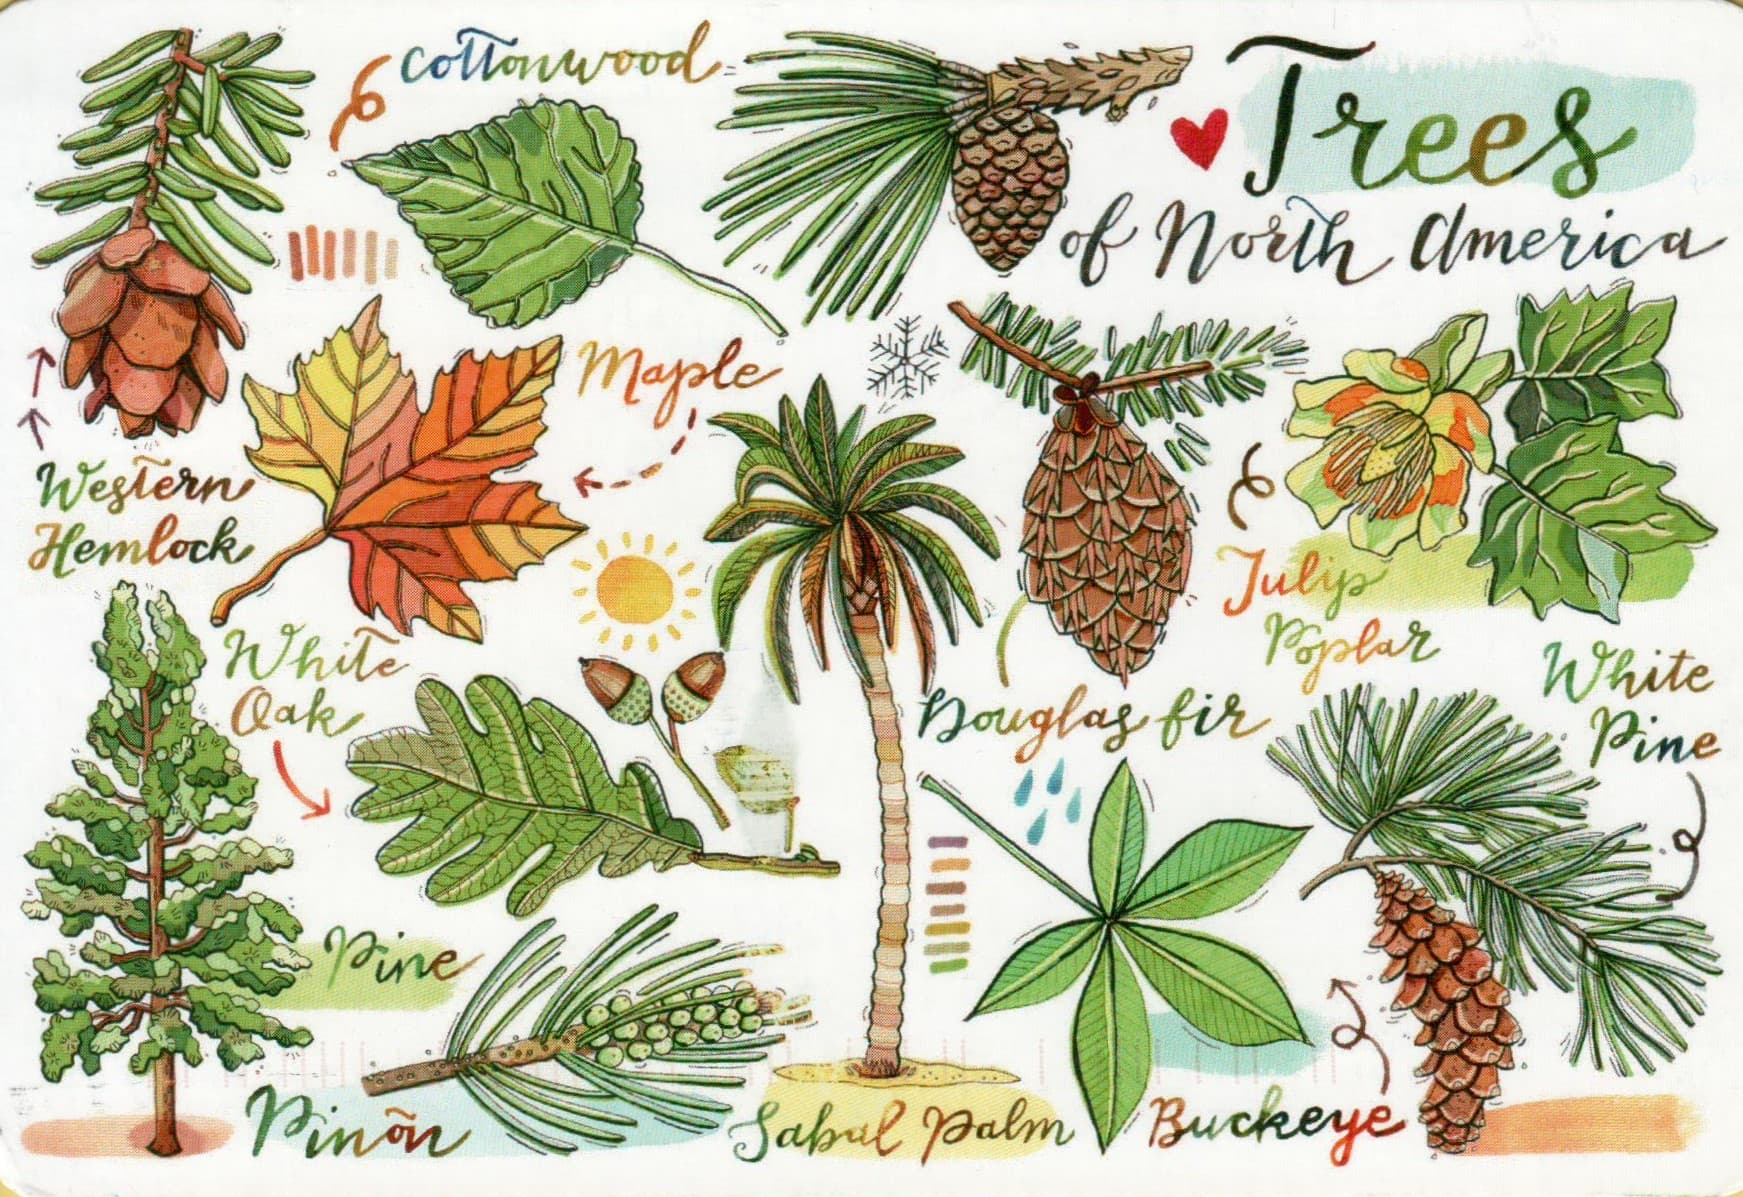 Cottonwood
Trees
of North America
Maple
Western
Hemlock
Tulip
Poplar
White
Oak
Douglas fir
White
Pine
Pine
Pinõn
Sabal Palm
Buckeye